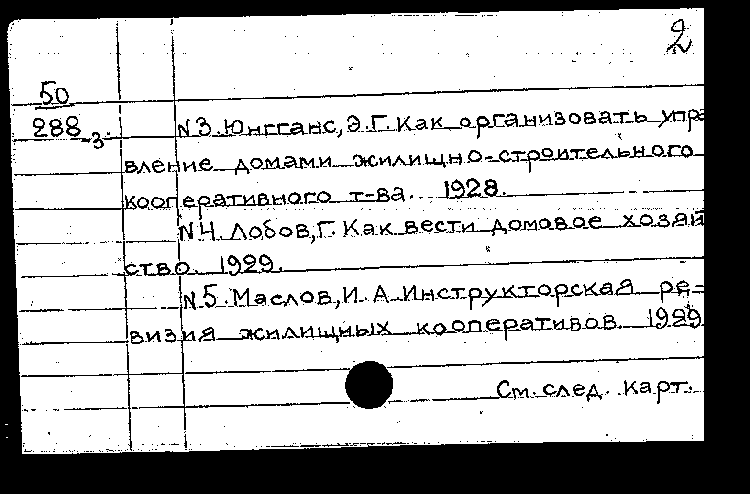 2
50
288-3. N3. Юнгганс, Э.Г. Как организовать упра
вление домами жилищно-строительного
кооперативного т-ва. 1928.
N4. Лобов, Г. Как вести домовое хозяй
ство. 1929.
N5. Маслов, И.А. Инструкторская ре-
визия жилищных кооперативов. 1929
См. след. карт.